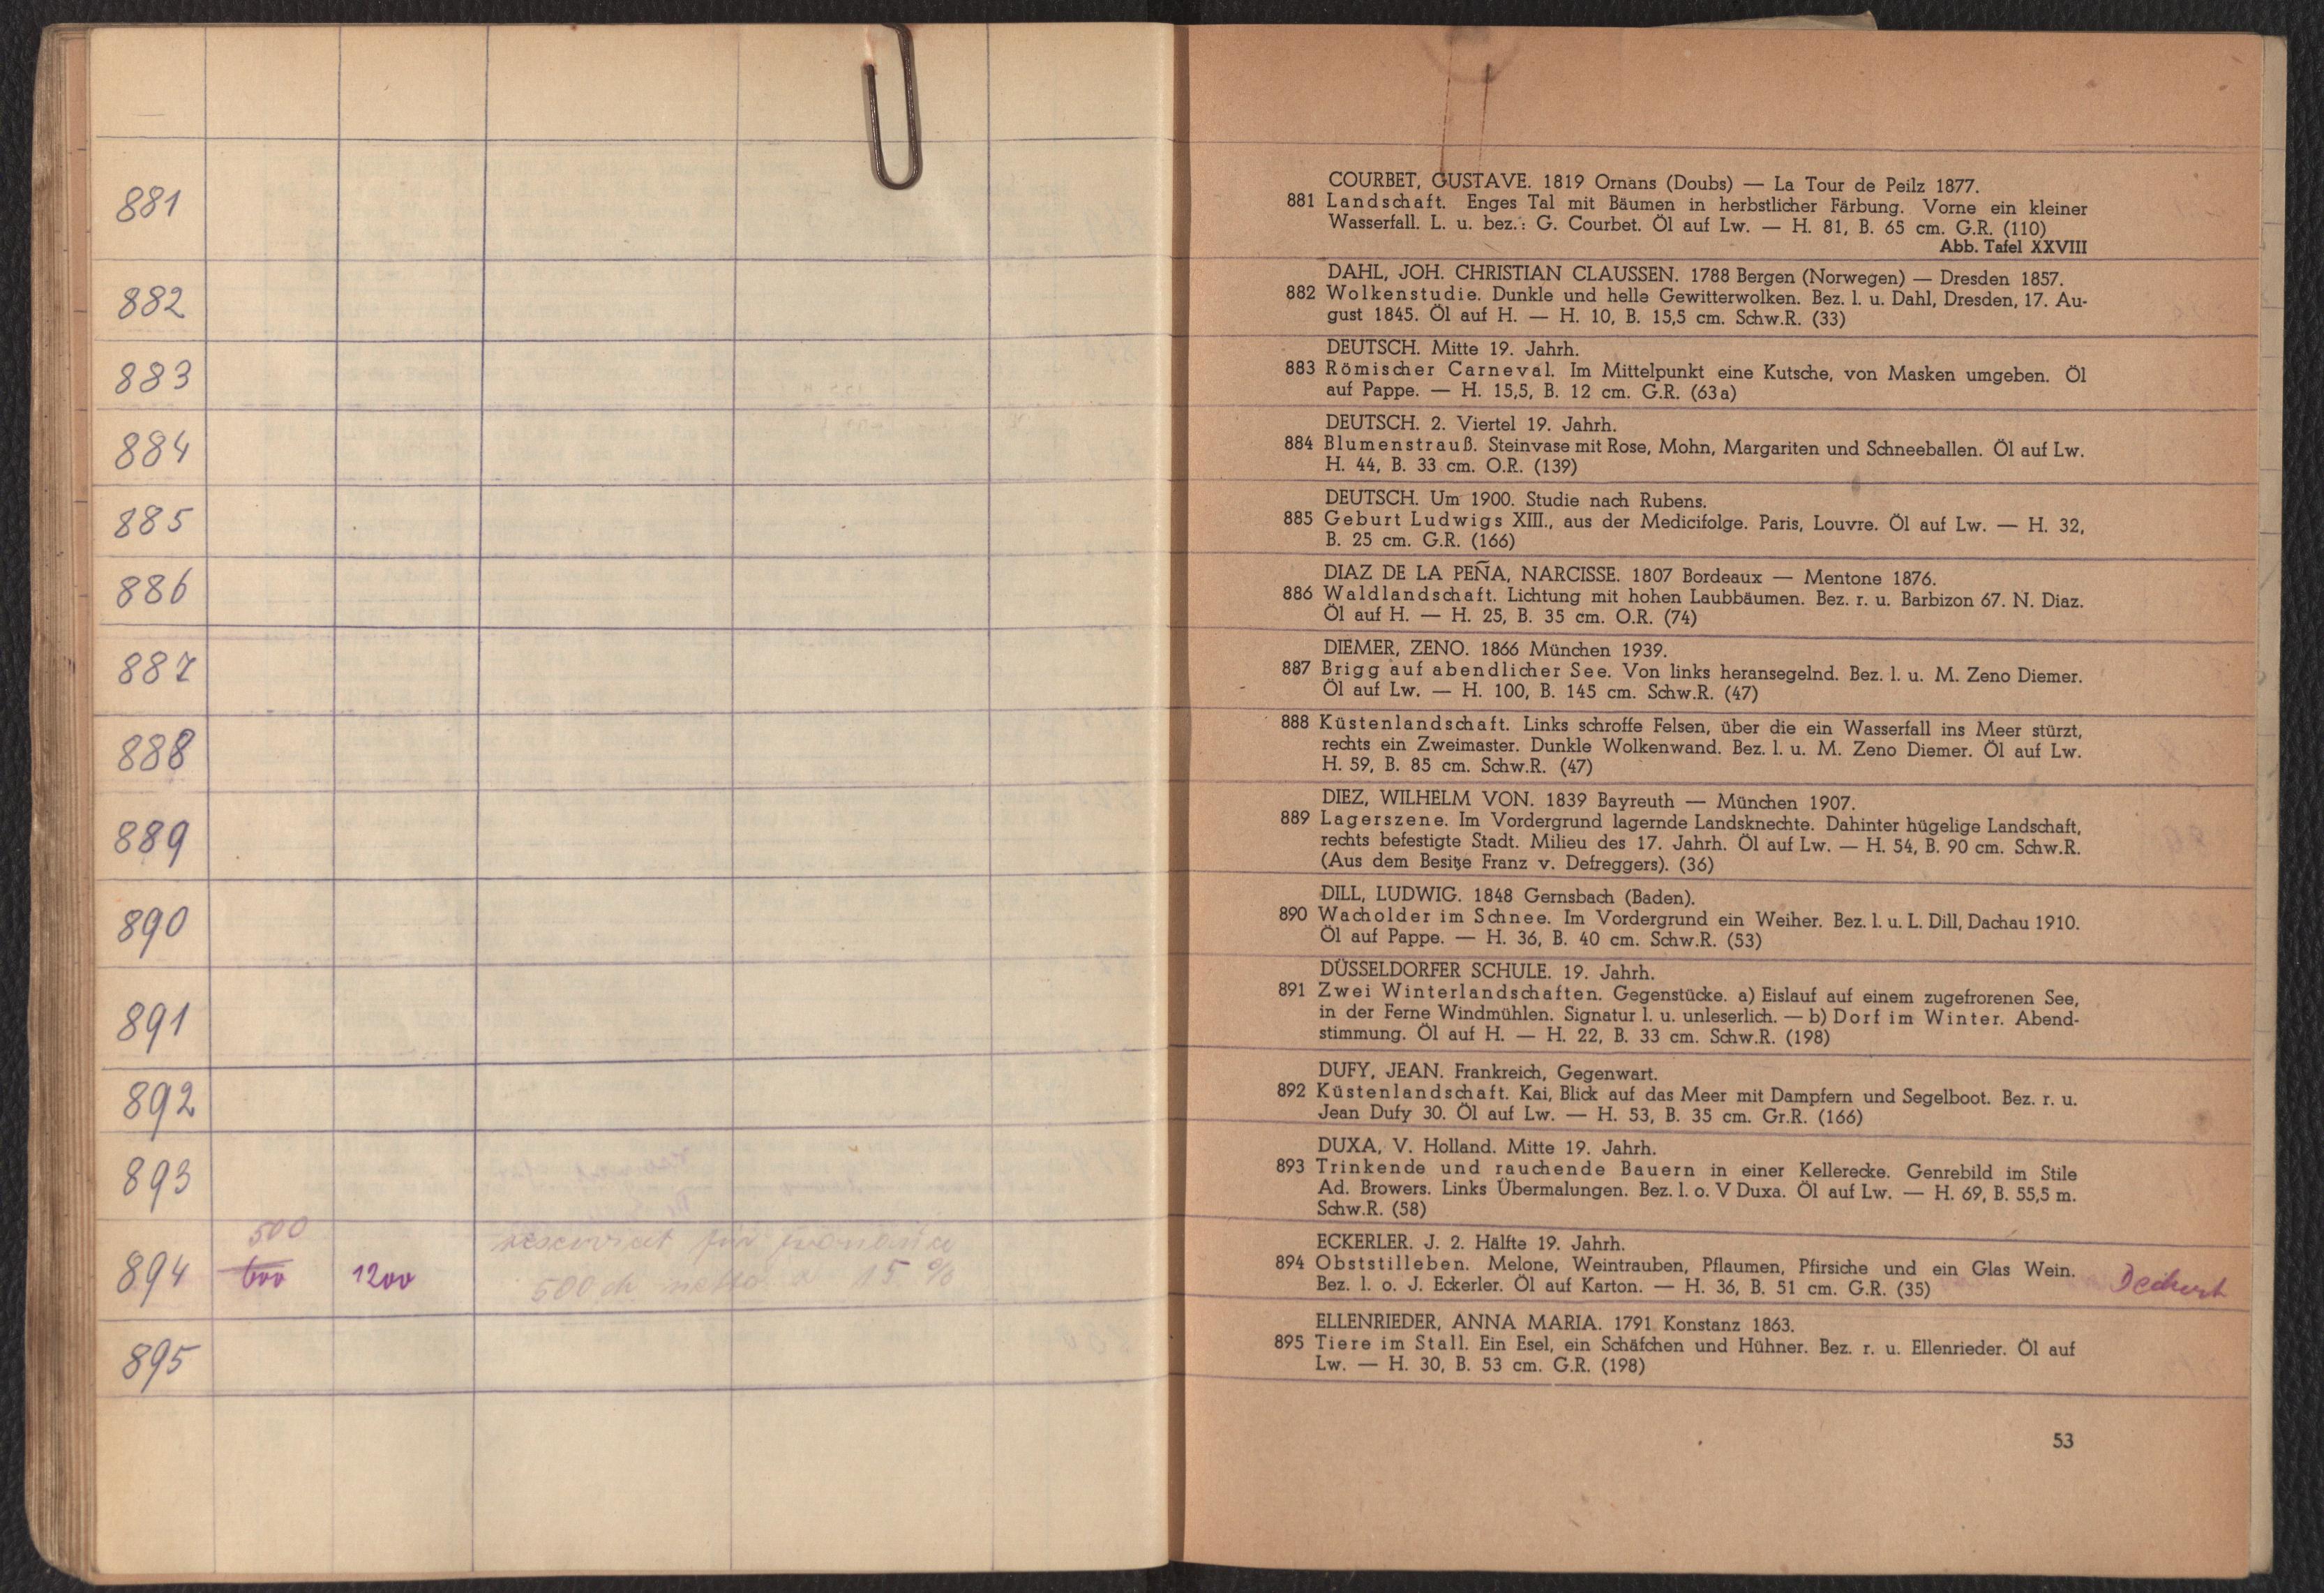 881
882
883
884
885
886
887
888
889
890
891
892
893
500
894 600 1200 reserviert für
500 15 %
895
COURBET, GUSTAVE. 1819 Ornans (Doubs) — La Tour de Peilz 1877.
881 Landschaft. Enges Tal mit Bäumen in herbstlicher Färbung. Vorne ein kleiner
Wasserfall. L. u. bez.: G. Courbet. Öl auf Lw. — H. 81, B. 65 cm. G.R. (110)
Abb. Tafel XXVIII
DAHL, JOH. CHRISTIAN CLAUSSEN. 1788 Bergen (Norwegen) — Dresden 1857.
882 Wolkenstudie. Dunkle und helle Gewitterwolken. Bez. l. u. Dahl, Dresden, 17. Au-
gust 1845. Öl auf H. — H. 10, B. 15,5 cm. Schw.R. (33)
DEUTSCH. Mitte 19. Jahrh.
883 Römischer Carneval. Im Mittelpunkt eine Kutsche, von Masken umgeben. Öl
auf Pappe. — H. 15,5, B. 12 cm. G.R. (63a)
DEUTSCH. 2. Viertel 19. Jahrh.
884 Blumenstrauß. Steinvase mit Rose, Mohn, Margariten und Schneeballen. Öl auf Lw.
H. 44, B. 33 cm. O.R. (139)
DEUTSCH. Um 1900. Studie nach Rubens.
885 Geburt Ludwigs XIII., aus der Medicifolge. Paris, Louvre. Öl auf Lw. — H. 32,
B. 25 cm. G.R. (166)
DIAZ DE LA PEÑA, NARCISSE. 1807 Bordeaux — Mentone 1876.
886 Waldlandschaft. Lichtung mit hohen Laubbäumen. Bez. r. u. Barbizon 67. N. Diaz.
Öl auf H. — H. 25, B. 35 cm. O.R. (74)
DIEMER, ZENO. 1866 München 1939.
887 Brigg auf abendlicher See. Von links heransegelnd. Bez. l. u. M. Zeno Diemer.
Öl auf Lw. — H. 100, B. 145 cm. Schw.R. (47)
888 Küstenlandschaft. Links schroffe Felsen, über die ein Wasserfall ins Meer stürzt,
rechts ein Zweimaster. Dunkle Wolkenwand. Bez. l. u. M. Zeno Diemer. Öl auf Lw.
H. 59, B. 85 cm. Schw.R. (47)
DIEZ, WILHELM VON. 1839 Bayreuth — München 1907.
889 Lagerszene. Im Vordergrund lagernde Landsknechte. Dahinter hügelige Landschaft,
rechts befestigte Stadt. Milieu des 17. Jahrh. Öl auf Lw. — H. 54, B. 90 cm. Schw.R.
(Aus dem Besitze Franz v. Defreggers). (36)
DILL, LUDWIG. 1848 Gernsbach (Baden).
890 Wacholder im Schnee. Im Vordergrund ein Weiher. Bez. l. u. L. Dill, Dachau 1910.
Öl auf Pappe. — H. 36, B. 40 cm. Schw.R. (53)
DÜSSELDORFER SCHULE. 19. Jahrh.
891 Zwei Winterlandschaften. Gegenstücke. a) Eislauf auf einem zugefrorenen See,
in der Ferne Windmühlen. Signatur l. u. unleserlich. — b) Dorf im Winter. Abend-
stimmung. Öl auf H. — H. 22, B. 33 cm. Schw.R. (198)
DUFY, JEAN. Frankreich, Gegenwart.
892 Küstenlandschaft. Kai, Blick auf das Meer mit Dampfern und Segelboot. Bez. r. u.
Jean Dufy 30. Öl auf Lw. — H. 53, B. 35 cm. Gr.R. (166)
DUXA, V. Holland. Mitte 19. Jahrh.
893 Trinkende und rauchende Bauern in einer Kellerecke. Genrebild im Stile
Ad. Browers. Links Übermalungen. Bez. l. o. V Duxa. Öl auf Lw. — H. 69, B. 55,5 m.
Schw.R. (58)
ECKERLER. J. 2. Hälfte 19. Jahrh.
894 Obststilleben. Melone, Weintrauben, Pflaumen, Pfirsiche und ein Glas Wein.
Bez. l. o. J. Eckerler. Öl auf Karton. — H. 36, B. 51 cm. G.R. (35) Deikert
ELLENRIEDER, ANNA MARIA. 1791 Konstanz 1863.
895 Tiere im Stall. Ein Esel, ein Schäfchen und Hühner. Bez. r. u. Ellenrieder. Öl auf
Lw. — H. 30, B. 53 cm. G.R. (198)
53